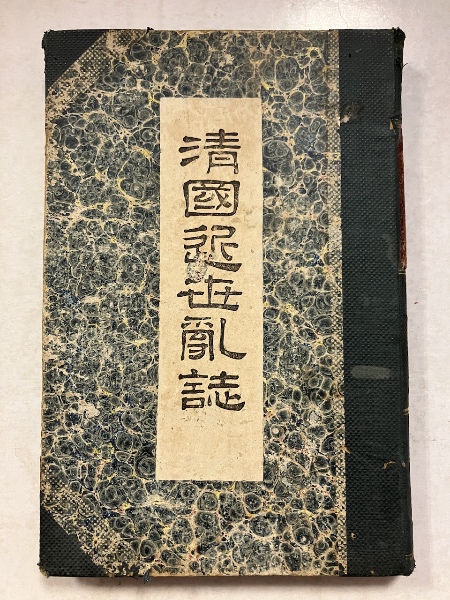 清國近世亂誌